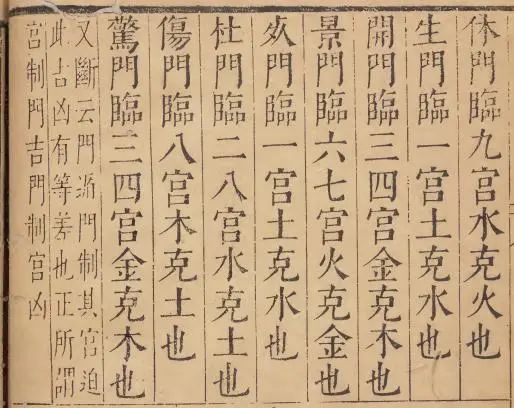 休門臨九宮水克火也
生門臨一宮土克水也
開門臨三四宮金克木也
景門臨六七宮火克金也
死門臨一宮土克水也
杜門臨二八宮水克土也
傷門臨八宮木克土也
驚門臨三四宮金克木也
又斷云門迫門制其宮迫
此吉凶有等差也正所謂
宮制門吉門制宮凶